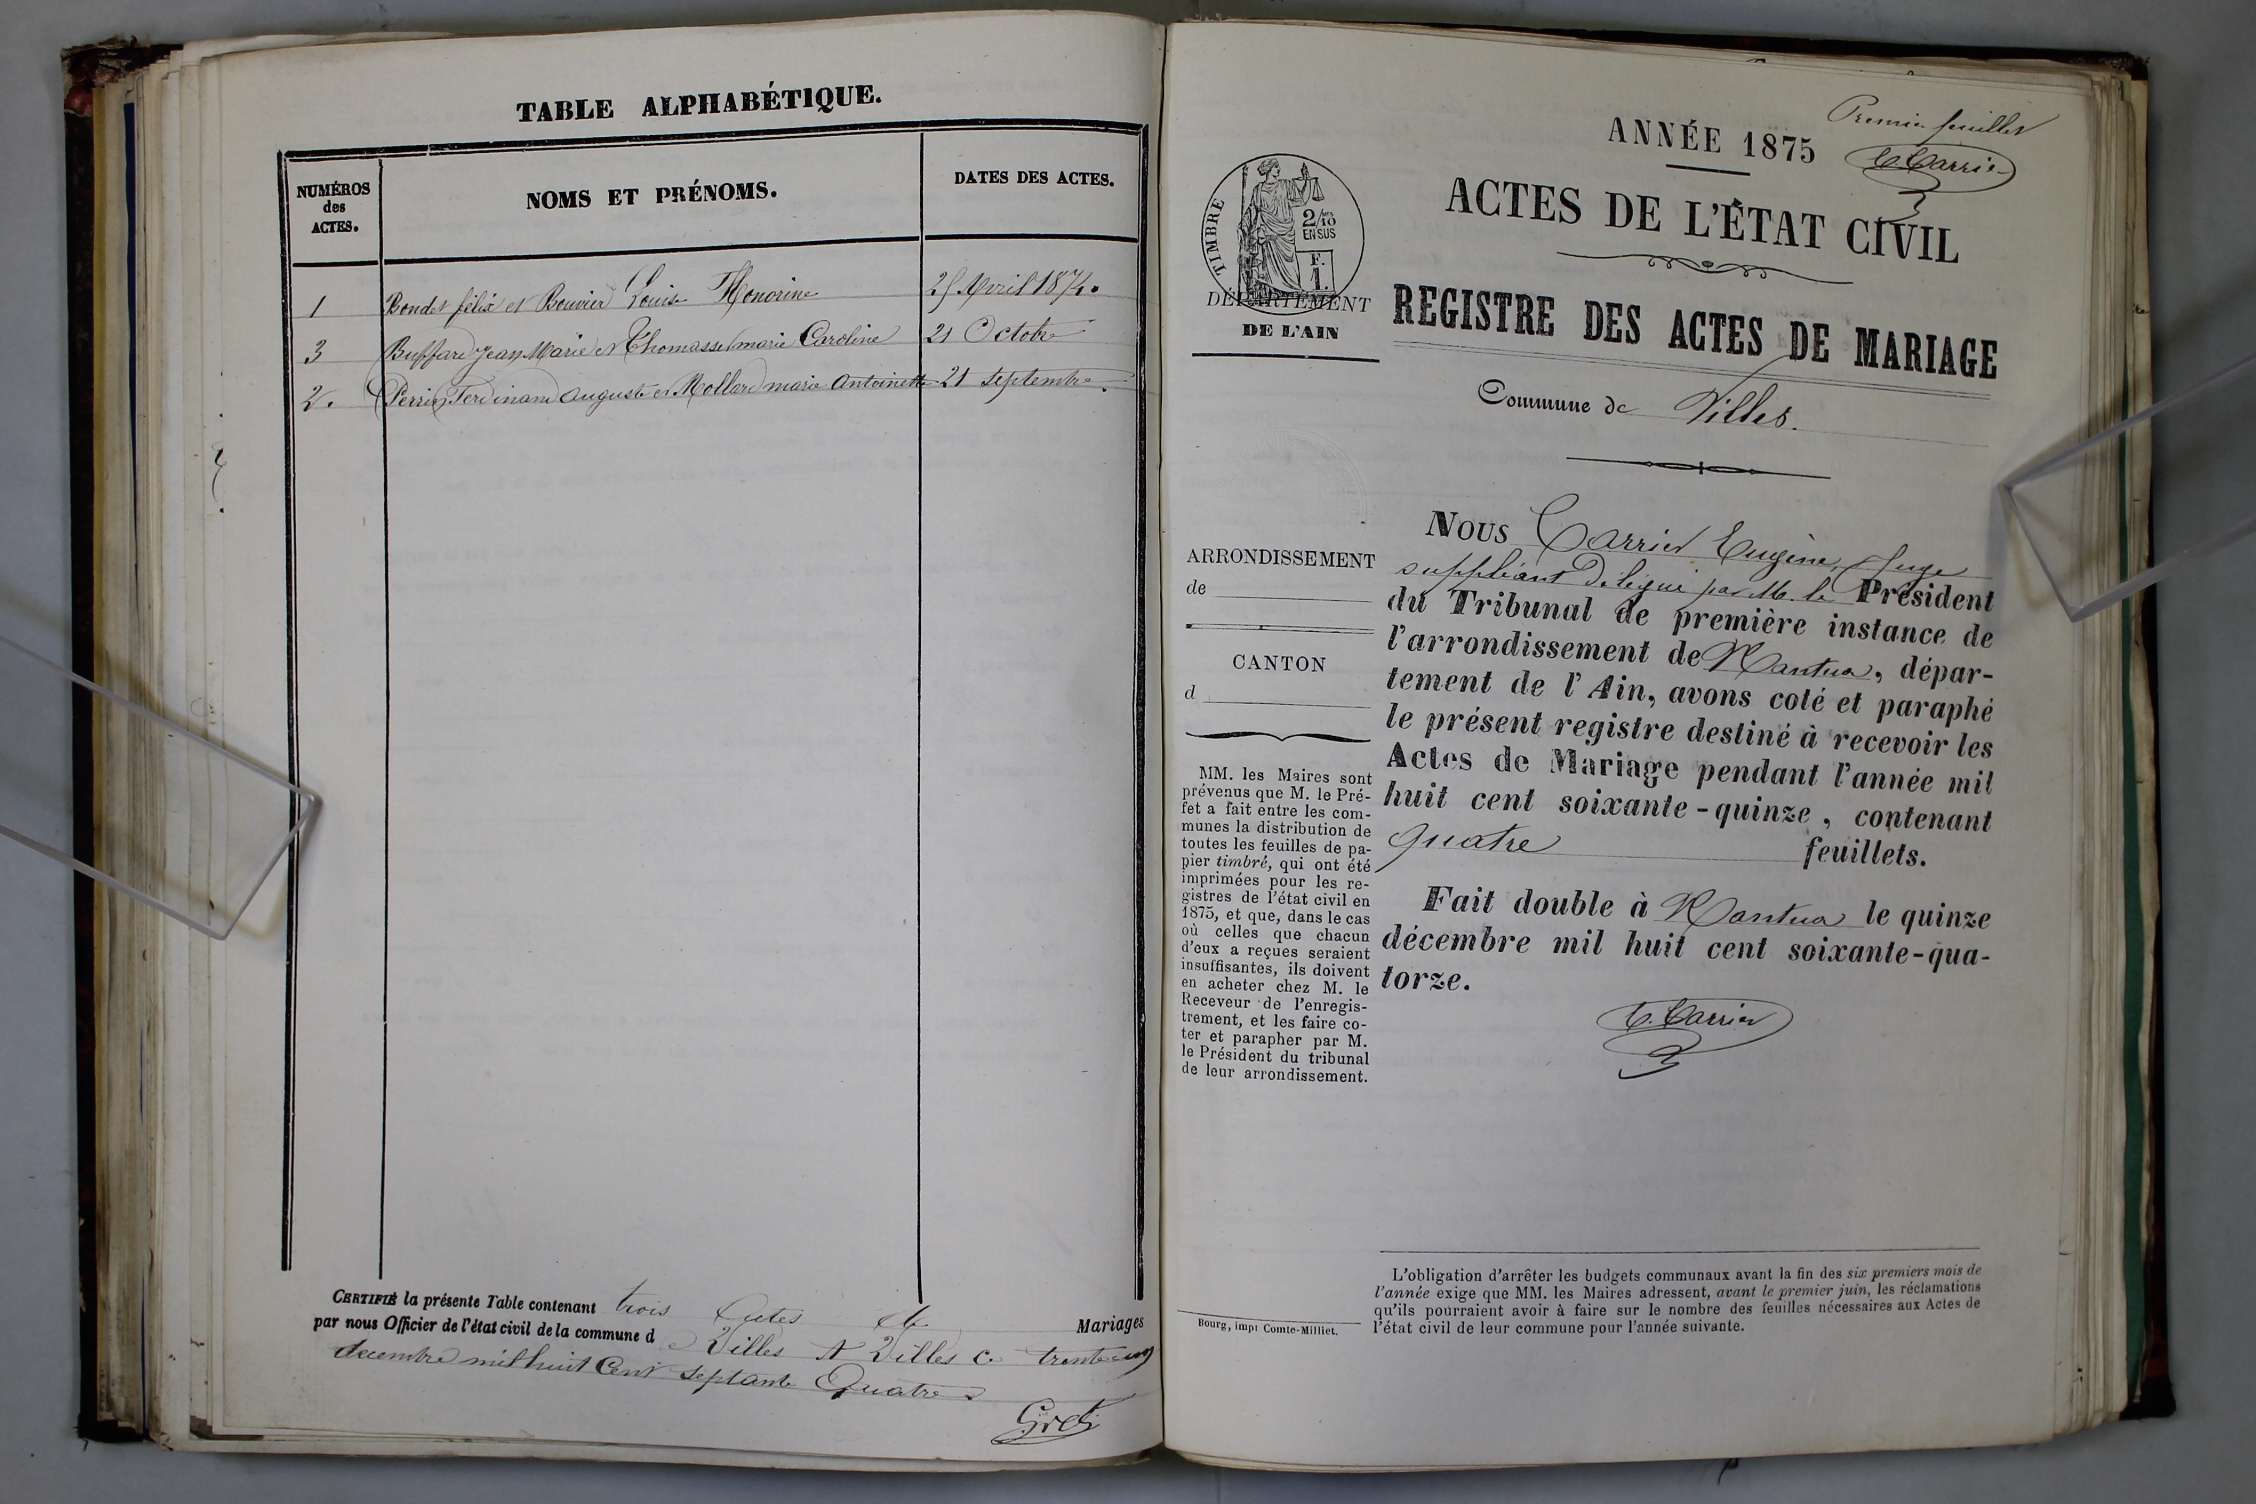 TABLE ALPHABÉTIQUE.
NUMÉROS
des
ACTES.
NOMS ET PRÉNOMS.
DATES DES ACTES.
1 Bondet félix et Bouvier Louise Honorine 25 Avril 1874.
3 Buffard Jean Marie et Thomasset marie Caroline 21 Octobre
2. Perrin Ferdinand auguste et Mollard marie antoinette 21 septembre.
CERTIFIÉ la présente Table contenant trois actes de Mariages
par nous Officier de l'état civil de la commune d e Villes A Villes ce trente un
decembre mil huit Cent septante Quatre
Premier feuillet
ANNÉE 1875
E Carrier
ACTES DE L'ÉTAT CIVIL
TIMBRE
2/10 EN SUS
F. 1.
DÉPARTEMENT
DE L'AIN
REGISTRE DES ACTES DE MARIAGE
Commune de Villes.
ARRONDISSEMENT
de
CANTON
d
MM. les Maires sont
prévenus que M. le Pré-
fet a fait entre les com-
munes la distribution de
toutes les feuilles de pa-
pier timbré, qui ont été
imprimées pour les re-
gistres de l'état civil en
1875, et que, dans le cas
où celles que chacun
d'eux a reçues seraient
insuffisantes, ils doivent
en acheter chez M. le
Receveur de l'enregis-
trement, et les faire co-
ter et parapher par M.
le Président du tribunal
de leur arrondissement.
Bourg, impr Comte-Milliet.
NOUS Carrier Eugène, Juge
suppléant délégué par M. le Président
du Tribunal de première instance de
l'arrondissement de Nantua, dépar-
tement de l'Ain, avons coté et paraphé
le présent registre destiné à recevoir les
Actes de Mariage pendant l'année mil
huit cent soixante-quinze, contenant
quatre feuillets.
Fait double à Nantua le quinze
décembre mil huit cent soixante-qua-
torze.
E. Carrier
L'obligation d'arrêter les budgets communaux avant la fin des six premiers mois de
l'année exige que MM. les Maires adressent, avant le premier juin, les réclamations
qu'ils pourraient avoir à faire sur le nombre des feuilles nécessaires aux Actes de
l'état civil de leur commune pour l'année suivante.